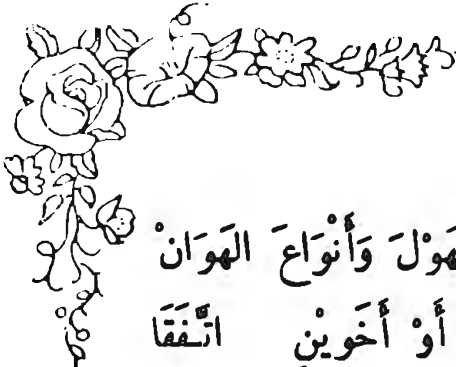 هَوْلَ وَأَنْوَاعَ الهَوَانْ
أَوْ أَخَويْنِ اتَّفَقَا